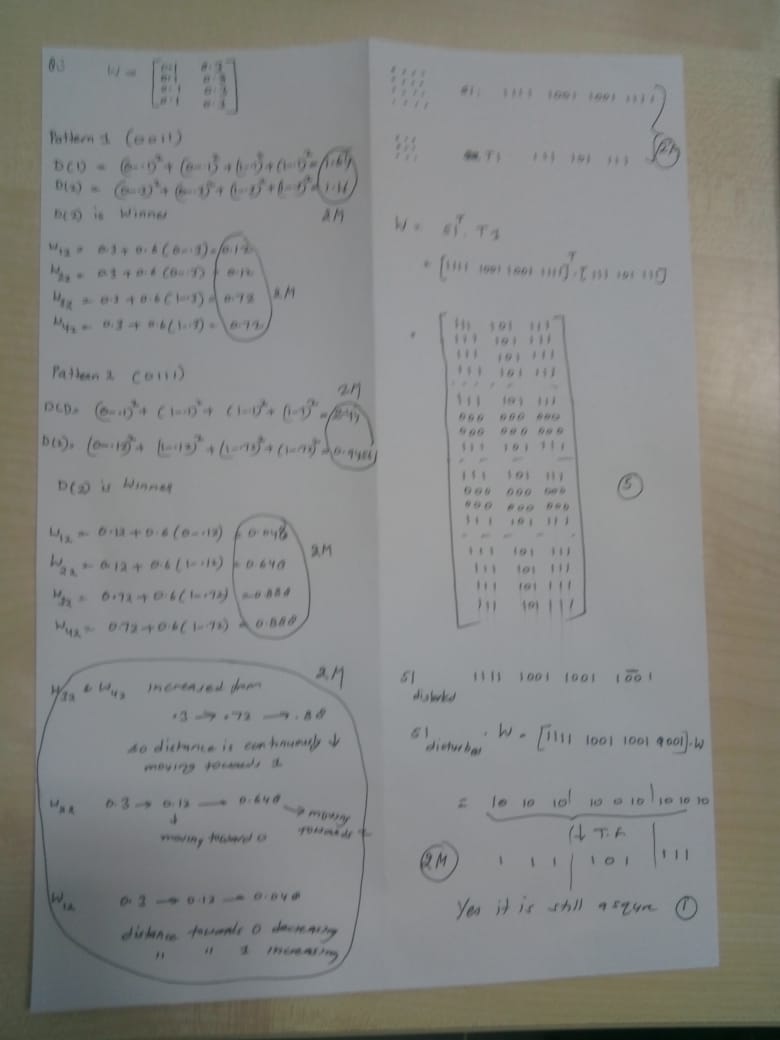 W = [0.1 0.3
0.1 0.3
0.1 0.3
0.1 0.3]
Pattern 1 (0011)
D(1) = (0-.1)² + (0-.1)² + (1-.1)² + (1-.1)² = 1.64
D(2) = (0-.3)² + (0-.3)² + (1-.3)² + (1-.3)² = 1.16
2M
D(2) is Winner
W12 = 0.3 + 0.6 (0-.3) = 0.12
W22 = 0.3 + 0.6 (0-.3) = 0.12
W32 = 0.3 + 0.6 (1-.3) = 0.72
2M
W42 = 0.3 + 0.6 (1-.3) = 0.72
Pattern 2 (0111)
2M
D(1) = (0-.1)² + (1-.1)² + (1-.1)² + (1-.1)² = 2.44
D(2) = (0-.12)² + (1-.12)² + (1-.72)² + (1-.72)² = 0.9456
D(2) is Winner
W12 = 0.12 + 0.6 (0-.12) = 0.048
W22 = 0.12 + 0.6 (1-.12) = 0.648
2M
W32 = 0.72 + 0.6 (1-.72) = 0.888
W42 = 0.72 + 0.6 (1-.72) = 0.888
2M
W32 & W42 increased from
.3 → .72 → .88
so distance is continuously ↓
moving towards 1
W22 0.3 → 0.12 → 0.648 → moving towards 1
↓
moving toward 0
W12 0.3 → 0.12 → 0.048
distance towards 0 decreasing
" " 1 increasing
1 1 1 1
1 1
1 1
1 1 1 1
S1: 1111 1001 1001 1111
1 1 1
1 1
1 1 1
T1 111 101 111
2M
W = S1ᵀ. T1
= [1111 1001 1001 1111]ᵀ . [111 101 111]
= [111 101 111
111 101 111
111 101 111
111 101 111
111 101 111
000 000 000
000 000 000
111 101 111
111 101 111
000 000 000
000 000 000
111 101 111
111 101 111
111 101 111
111 101 111
111 101 111]
5
S1 1111 1001 1001 1001
disturbed
S1 disturbed . W = [1111 1001 1001 1001].W
= 10 10 10 | 10 0 10 | 10 10 10
↓ T.F
2M 1 1 1 | 1 0 1 | 1 1 1
Yes it is still a squre 1